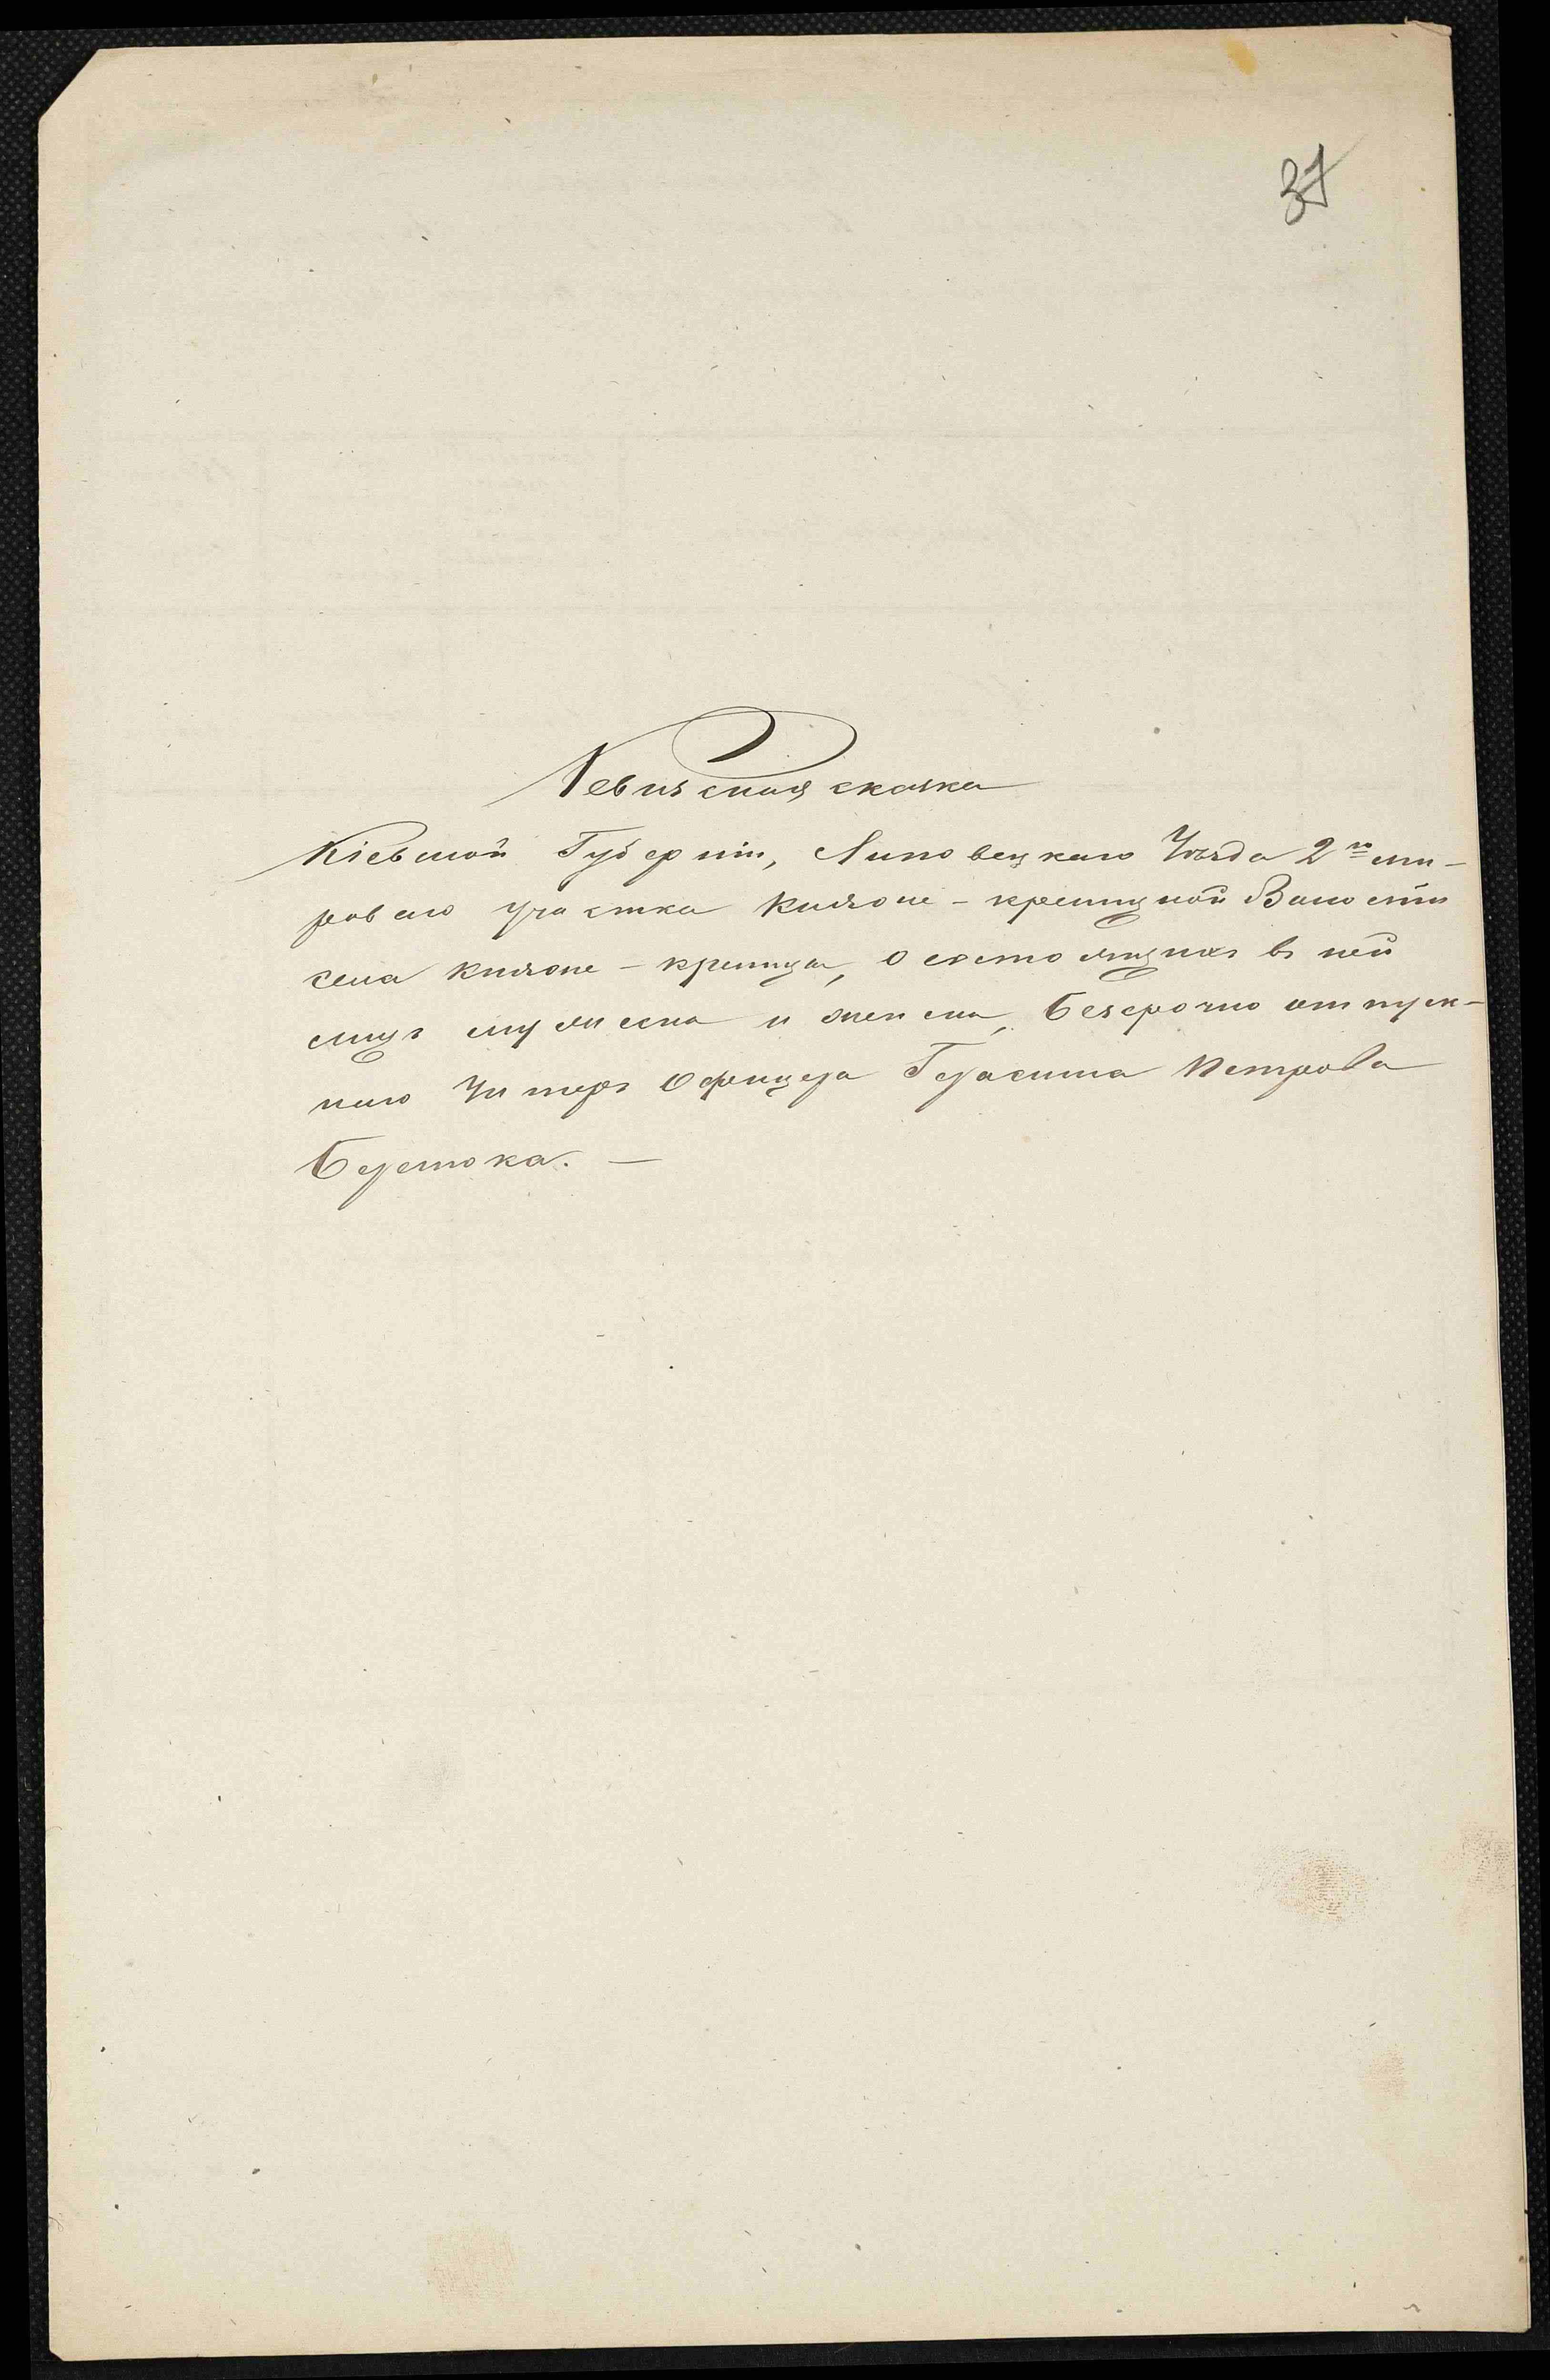 37
Ревизская сказка
Кіевской Губерніи, Липовецкаго Уѣзда 2го ми-
роваго участка Княже-криницкой Волости
села Княже-криница, о состоящихъ въ ней
лицъ мужеска и женска, безсрочно отпуск-
наго Унтеръ Офицера Герасима Петрова
Берестока. —